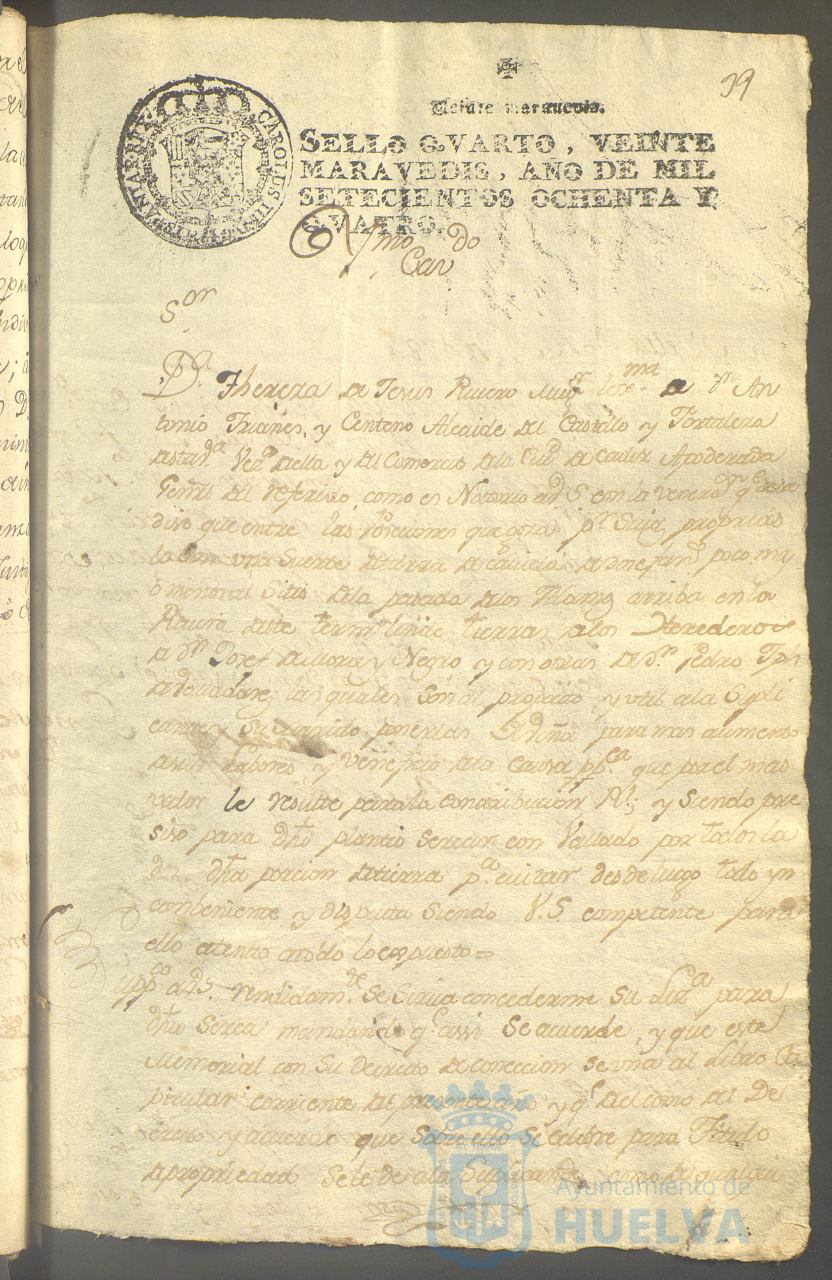 39
SELLO QVARTO, VEINTE
MARAVEDIS, AÑO DE MIL
SETECIENTOS OCHENTA Y
QVATRO.
Ylmo Cavdo
Sor
Da. Thereza de Jesus Rivero Muxr lexma de Dn. An
tonio Trianes, y Centeno Alcaide del Castillo y Fortaleza
desta Va. Veza della y del Comercio de la Ciud. de Cadiz Apoderada
Genrl del referido, como es Notorio a V.S con la veneraon qe deve
dise que entre las Posesiones que goza pr Suias proprias
lo son una Suerte de tierra de de fans poco mas
ó menos al Sitio de la pasada de los arriba en la
Rivera deste termo linde tierras de los Herederos
de Dn. Josef de Mora y Negro y con otras de Dn. Pedro Jph
de las quales son al proposito y util a la Supli
cante y Su Marido ponerlas de Viña para mas aumento
de sus labores y veneficio de la Causa ppca que por el mas
valor le resulte para la Contribucion Rl; y siendo pre
siso para dho plantio sercar con Vallado por todos la
dos dha porcion de tierra pa. evitar desde luego todo yn
conbeniente y disputa siendo V.S competente para
ello atento a todo lo expuesto =
Suppco a V.S. rendidamte se Sirva concederme Su Liza para
dha Serca mandando qe assi se acuerde, y que este
Memorial con Su Decreto de conecion se una al Libro Ca
pitular corriente del presente año y qe del como del De
creto y acuerdo que sobre ello se celebre para Titulo
de propriedad se le de a la Suplicante como de qualqui
Ayuntamiento de
HUELVA